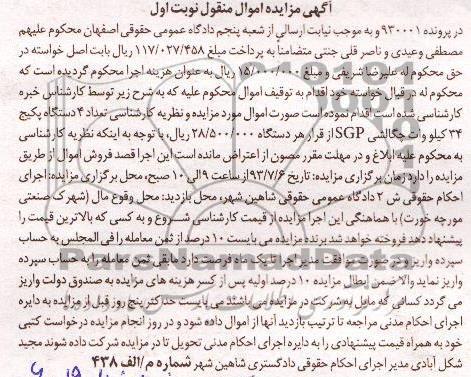 آگهی مزایده اموال منقول نوبت اول
در پرونده ۹۳۰۰۰۱ و به موجب نیابت ارسالی از شعبه پنجم دادگاه عمومی حقوقی اصفهان محکوم علیهم
مصطفی وعیدی و ناصر قلی جنتی متضامناً به پرداخت مبلغ ۱۱۷/۰۲۷/۴۵۸ ریال بابت اصل خواسته در
حق محکوم له علیرضا شریفی و مبلغ ۱۵/۰۰۰/۰۰۰ ریال به عنوان هزینه اجرا محکوم گردیده است که
محکوم له در قبال خواسته خود اقدام به توقیف اموال محکوم علیه که به شرح زیر توسط کارشناس خبره
کارشناسی شده است اقدام نموده است صورت اموال مورد مزایده و نظریه کارشناسی تعداد ۴ دستگاه پکیج
۳۴ کیلو وات چگالشی SGP از قرار هر دستگاه ۲۸/۵۰۰/۰۰۰ ریال، با توجه به اینکه نظریه کارشناسی
به محکوم علیه ابلاغ و در مهلت مقرر مصون از اعتراض مانده است این اجرا قصد فروش اموال از طریق
مزایده را دارد زمان برگزاری مزایده: تاریخ ۹۳/۷/۶ از ساعت ۹ الی ۱۰ صبح، محل برگزاری مزایده: اجرای
احکام حقوقی ش ۲ دادگاه عمومی حقوقی شاهین شهر، محل بازدید: محل وقوع مال (شهرک صنعتی
مورچه خورت) با هماهنگی این اجرا مزایده از قیمت کارشناسی شروع و به کسی که بالاترین قیمت را
پیشنهاد دهد فروخته خواهد شد برنده مزایده می بایست ۱۰ درصد از ثمن معامله را فی المجلس به حساب
سپرده واریز و در صورت موافقت مدیر اجرا تا یک ماه فرصت دارد مابقی ثمن معامله را به حساب سپرده
واریز نماید والا ضمن ابطال مزایده ۱۰ درصد اولیه پس از کسر هزینه های مزایده به صندوق دولت واریز
می گردد کسانی که مایل به شرکت در مزایده می باشند می بایست حداکثر پنج روز قبل از مزایده به دایره
اجرای احکام مدنی مراجعه تا ترتیب بازدید آنها از اموال داده شود و در روز انجام مزایده درخواست کتبی
خود به همراه قیمت پیشنهادی را به دایره اجرای احکام مدنی تحویل تا در مزایده شرکت داده شوند مجید
شکل آبادی مدیر اجرای احکام حقوقی دادگستری شاهین شهر شماره م/الف ۴۳۸
ParsNamadData